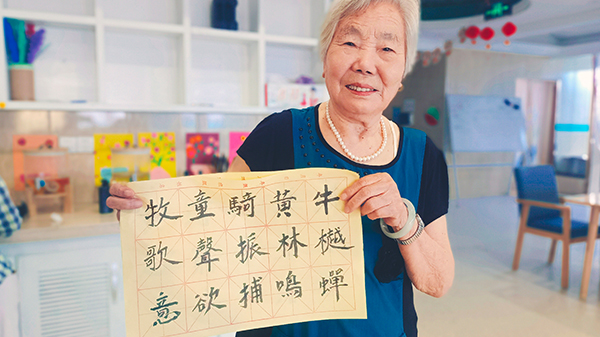 牧童騎黃牛
歌聲振林樾
意欲捕鳴蟬